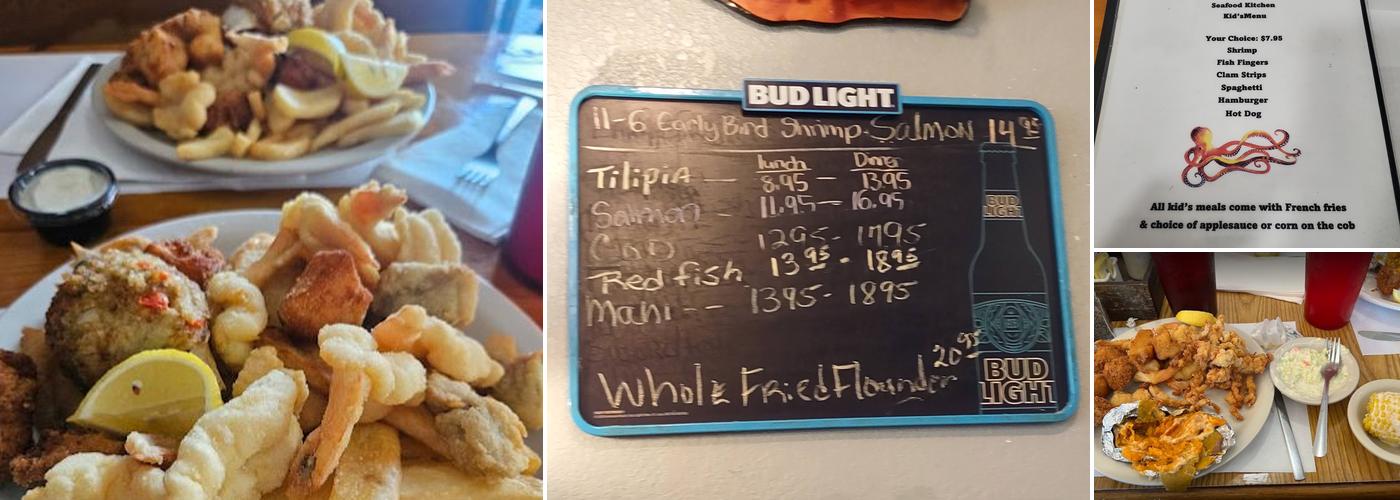 BUD LIGHT
11-6 Early Bird Shrimp-Salmon 14 95
lunch Dinner
Tilipia — 8.95 — 13.95
Salmon — 11.95 — 16.95
Cod 12 95 - 17 95
Redfish 13 95 - 18 95
Mahi - - 13 95 - 18 95
Whole Fried Flounder 20 95
BUD
LIGHT
BUD
LIGHT
Seafood Kitchen
Kid'sMenu
Your Choice: $7.95
Shrimp
Fish Fingers
Clam Strips
Spaghetti
Hamburger
Hot Dog
All kid's meals come with French fries
& choice of applesauce or corn on the cob